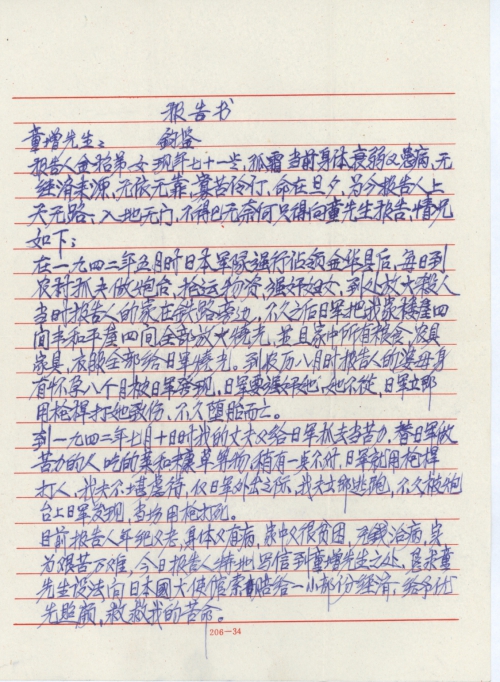 报告书
童增先生: 钧鉴
报告人金招弟,女,现年七十一岁,孤霜,当前身体衰弱又患病,无
经济来源,无依无靠,寡苦伶仃,命在旦夕,为今报告人上
天无路、入地无门,不得已无奈何只得向童先生报告,情况
如下:
在一九四二年五月时日本军队强行佔领金华县后,每日到
农村抓夫做炮台,抢运物资,强奸妇女,到处放火杀人
当时报告人的家在铁路旁边,不久之后日军把我家楼屋四
间半和平屋四间全部放火烧光,並且家中所有粮食、农具
家具,衣服全部给日军烧光。到农历八月时报告人的婆母身
有怀孕八个月被日军发现,日军要强奸她,她不从,日军立即
用枪捍打她致伤,不久堕胎而亡。
到一九四二年七月十日时我的丈夫又给日军抓去当苦力,替日军做
苦力的人吃的菜和草界物,稍有一点不对,日军就用枪捍
打人,我夫不堪虐待,仅日军外出之际,我夫立即逃跑,不久被炮
台上日军发现,当场用枪打死。
目前报告人年纪又老,身体又有病,家中又很贫困,无钱治病,实
为艰苦万难,今日报告人特此写信到童增先生之处,恳求童
先生设法向日本國大使馆索赔给一小部份经济,给予优
先照顾,救救我的苦命。
206—34